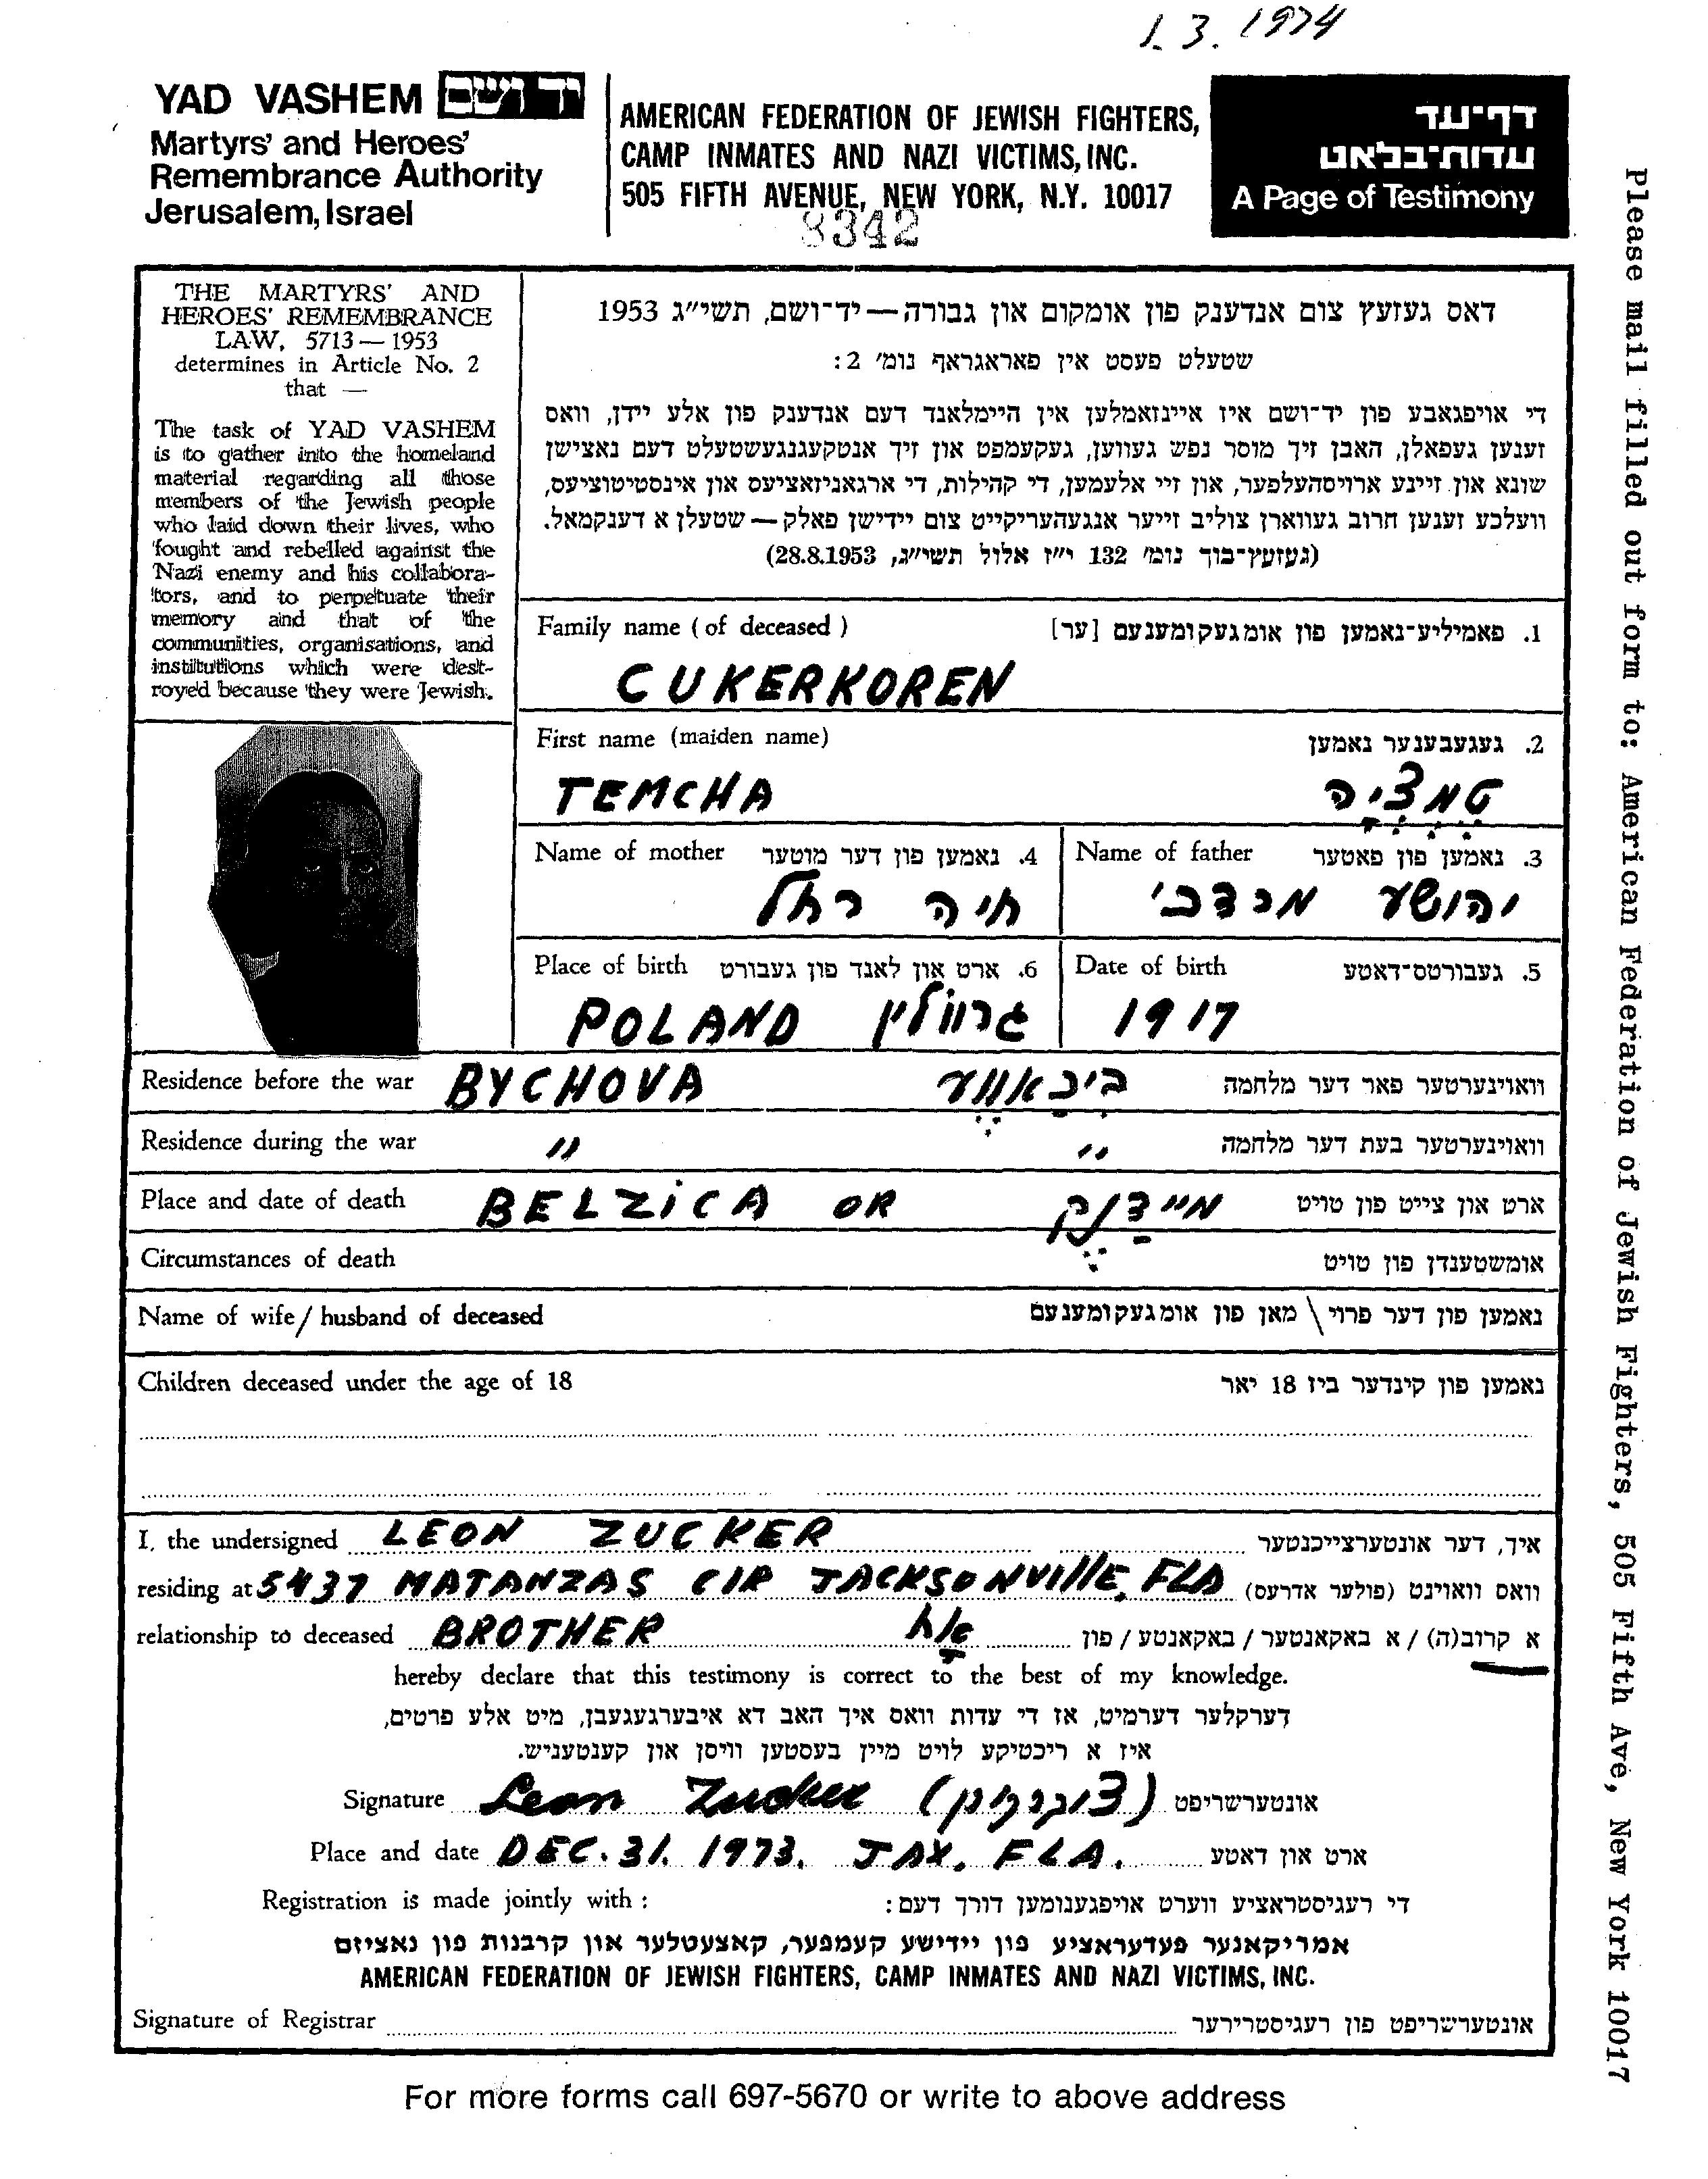 1.3.1974
YAD VASHEM יד ושם
Martyrs' and Heroes'
Remembrance Authority
Jerusalem, Israel
AMERICAN FEDERATION OF JEWISH FIGHTERS,
CAMP INMATES AND NAZI VICTIMS, INC.
505 FIFTH AVENUE, NEW YORK, N.Y. 10017
8342
דף־עד
עדות־בלאט
A Page of Testimony
THE MARTYRS' AND
HEROES' REMEMBRANCE
LAW, 5713 — 1953
determines in Article No. 2
that —
The task of YAD VASHEM
is to gather into the homeland
material regarding all those
members of the Jewish people
who laid down their lives, who
fought and rebelled against the
Nazi enemy and his collabora-
tors, and to perpetuate their
memory and that of the
communities, organisations, and
institutions which were dest-
royed because they were Jewish.
דאס געזעץ צום אנדענק פון אומקום און גבורה — יד־ושם, תשי״ג 1953
שטעלט פעסט אין פאראגראף נומ׳ 2:
די אויפגאבע פון יד־ושם איז איינזאמלען אין היימלאנד דעם אנדענק פון אלע יידן, וואס
זענען געפאלן, האבן זיך מוסר נפש געווען, געקעמפט און זיך אנטקעגנגעשטעלט דעם נאצישן
שונא און זיינע ארויסהעלפער, און זיי אלעמען, די קהילות, די ארגאניזאציעס און אינסטיטוציעס,
וועלכע זענען חרוב געווארן צוליב זייער אנגעהעריקייט צום יידישן פאלק — שטעלן א דענקמאל.
(געזעץ־בוך נומ׳ 132 י״ז אלול תשי״ג, 28.8.1953)
Family name (of deceased) 1. פאמיליע־נאמען פון אומגעקומענעם [ער]
CUKERKOREN
First name (maiden name) 2. געגעבענער נאמען
TEMCHA טמציה
Name of mother 4. נאמען פון דער מוטער Name of father 3. נאמען פון פאטער
חיה רחל יהושע מרדכי
Place of birth 6. ארט און לאנד פון געבורט Date of birth 5. געבורטס־דאטע
POLAND גרוולין 1917
Residence before the war BYCHOVA ביכאווער וואוינערטער פאר דער מלחמה
Residence during the war " " וואוינערטער בעת דער מלחמה
Place and date of death BELZiCA OR מיידנק ארט און צייט פון טויט
Circumstances of death אומשטענדן פון טויט
Name of wife / husband of deceased נאמען פון דער פרוי \ מאן פון אומגעקומענעם
Children deceased under the age of 18 נאמען פון קינדער ביז 18 יאר
I, the undersigned LEON ZUCKER איך, דער אונטערצייכנטער
residing at 5437 MATANZAS CIR JACKSONVIllE, FLA וואס וואוינט (פולער אדרעס)
relationship to deceased BROTHER א קרוב(ה) / א באקאנטער / באקאנטע / פון
hereby declare that this testimony is correct to the best of my knowledge.
דערקלער דערמיט, אז די עדות וואס איך האב דא איבערגעגעבן, מיט אלע פרטים,
איז א ריכטיקע לויט מיין בעסטען וויסן און קענטעניש.
Signature Leon Zucker אונטערשריפט
Place and date DEC. 31. 1973. JAX. FLA. ארט און דאטע
Registration is made jointly with : די רעגיסטראציע ווערט אויפגענומען דורך דעם:
אמריקאנער פעדעראציע פון יידישע קעמפער, קאצעטלער און קרבנות פון נאציזם
AMERICAN FEDERATION OF JEWISH FIGHTERS, CAMP INMATES AND NAZI VICTIMS, INC.
Signature of Registrar אונטערשריפט פון רעגיסטרירער
For more forms call 697-5670 or write to above address
Please mail filled out form to: American Federation of Jewish Fighters, 505 Fifth Ave, New York 10017